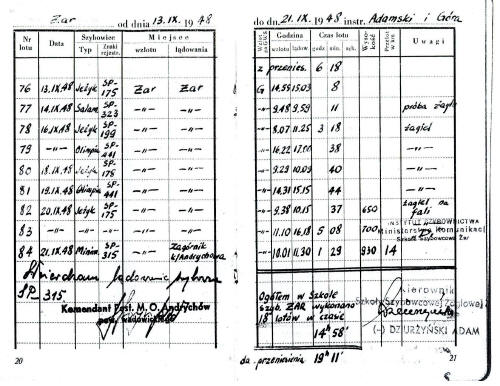 Żar od dnia 13.IX. 1948
Nr lotu Data Szybowiec Miejsce
Typ Znaki rejestr. wzlotu lądowania
76 13.IX.48 Jeżyk SP-175 Żar Żar
77 14.IX.48 Salam. SP-323 -"- -"-
78 16.IX.48 Jeżyk SP-199 -"- -"-
79 -"- Olimpia SP-441 -"- -"-
80 18.IX.48 Jeżyk SP-175 -"- -"-
81 19.IX.48 Olimpia SP-441 -"- -"-
82 20.IX.48 Jeżyk SP-175 -"- -"-
83 -"- -"- -"- -"-
84 21.IX.48 Mimi SP-315 -"- Zagórnik k/Andrychowa
SP-315
Komendant Post. M.O. Andrychów
pow. wadowickiego
20
do dn. 21.IX. 1948 instr. Adamski i Góra
Godzina Czas lotu Wyso-kość Uwagi
wzlotu lądow. godz. min. sek.
z przenies. 6 18
G 14.55 15.03 8
-"- 9.48 9.59 11 próba żagla
-"- 8.07 11.25 3 18 żagiel
-"- 16.22 17.00 38 -"-
-"- 9.29 10.09 40 -"-
-"- 14.31 15.15 44 -"-
-"- 9.38 10.15 37 650 żagiel na fali
-"- 11.10 16.18 5 08 700
-"- 10.01 11.30 1 29 930 14
INSTYTUT SZYBOWNICTWA
Ministerstwa Komunikacji
Szkoła Szybowcowa Żar
Ogółem w Szkole
szyb. ŻAR wykonano
lotów w czasie
14h 58'
Kierownik
Szkoły Szybowcowej Żaglowej
(-) DZIURZYŃSKI ADAM
do przeniesienia 19h 11'
21